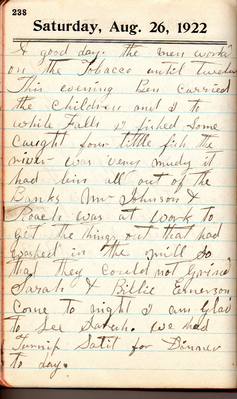 238
Saturday, Aug. 26, 1922
A good day. the men workd
on the Tobacco until twelve
This evening Ben carried
the children and I to
white Falls & fished some
caught four little fish the
river was very mudy it
had bin all out of the
Banks Mr Johnson &
Roach was at work to
get the things out that had
washed in the mill so
that they could not Grind
Sarah & Billie Emerson
come to night I am Glad
to see Sarah. we had
Turnip Salit for Dinner
to day.